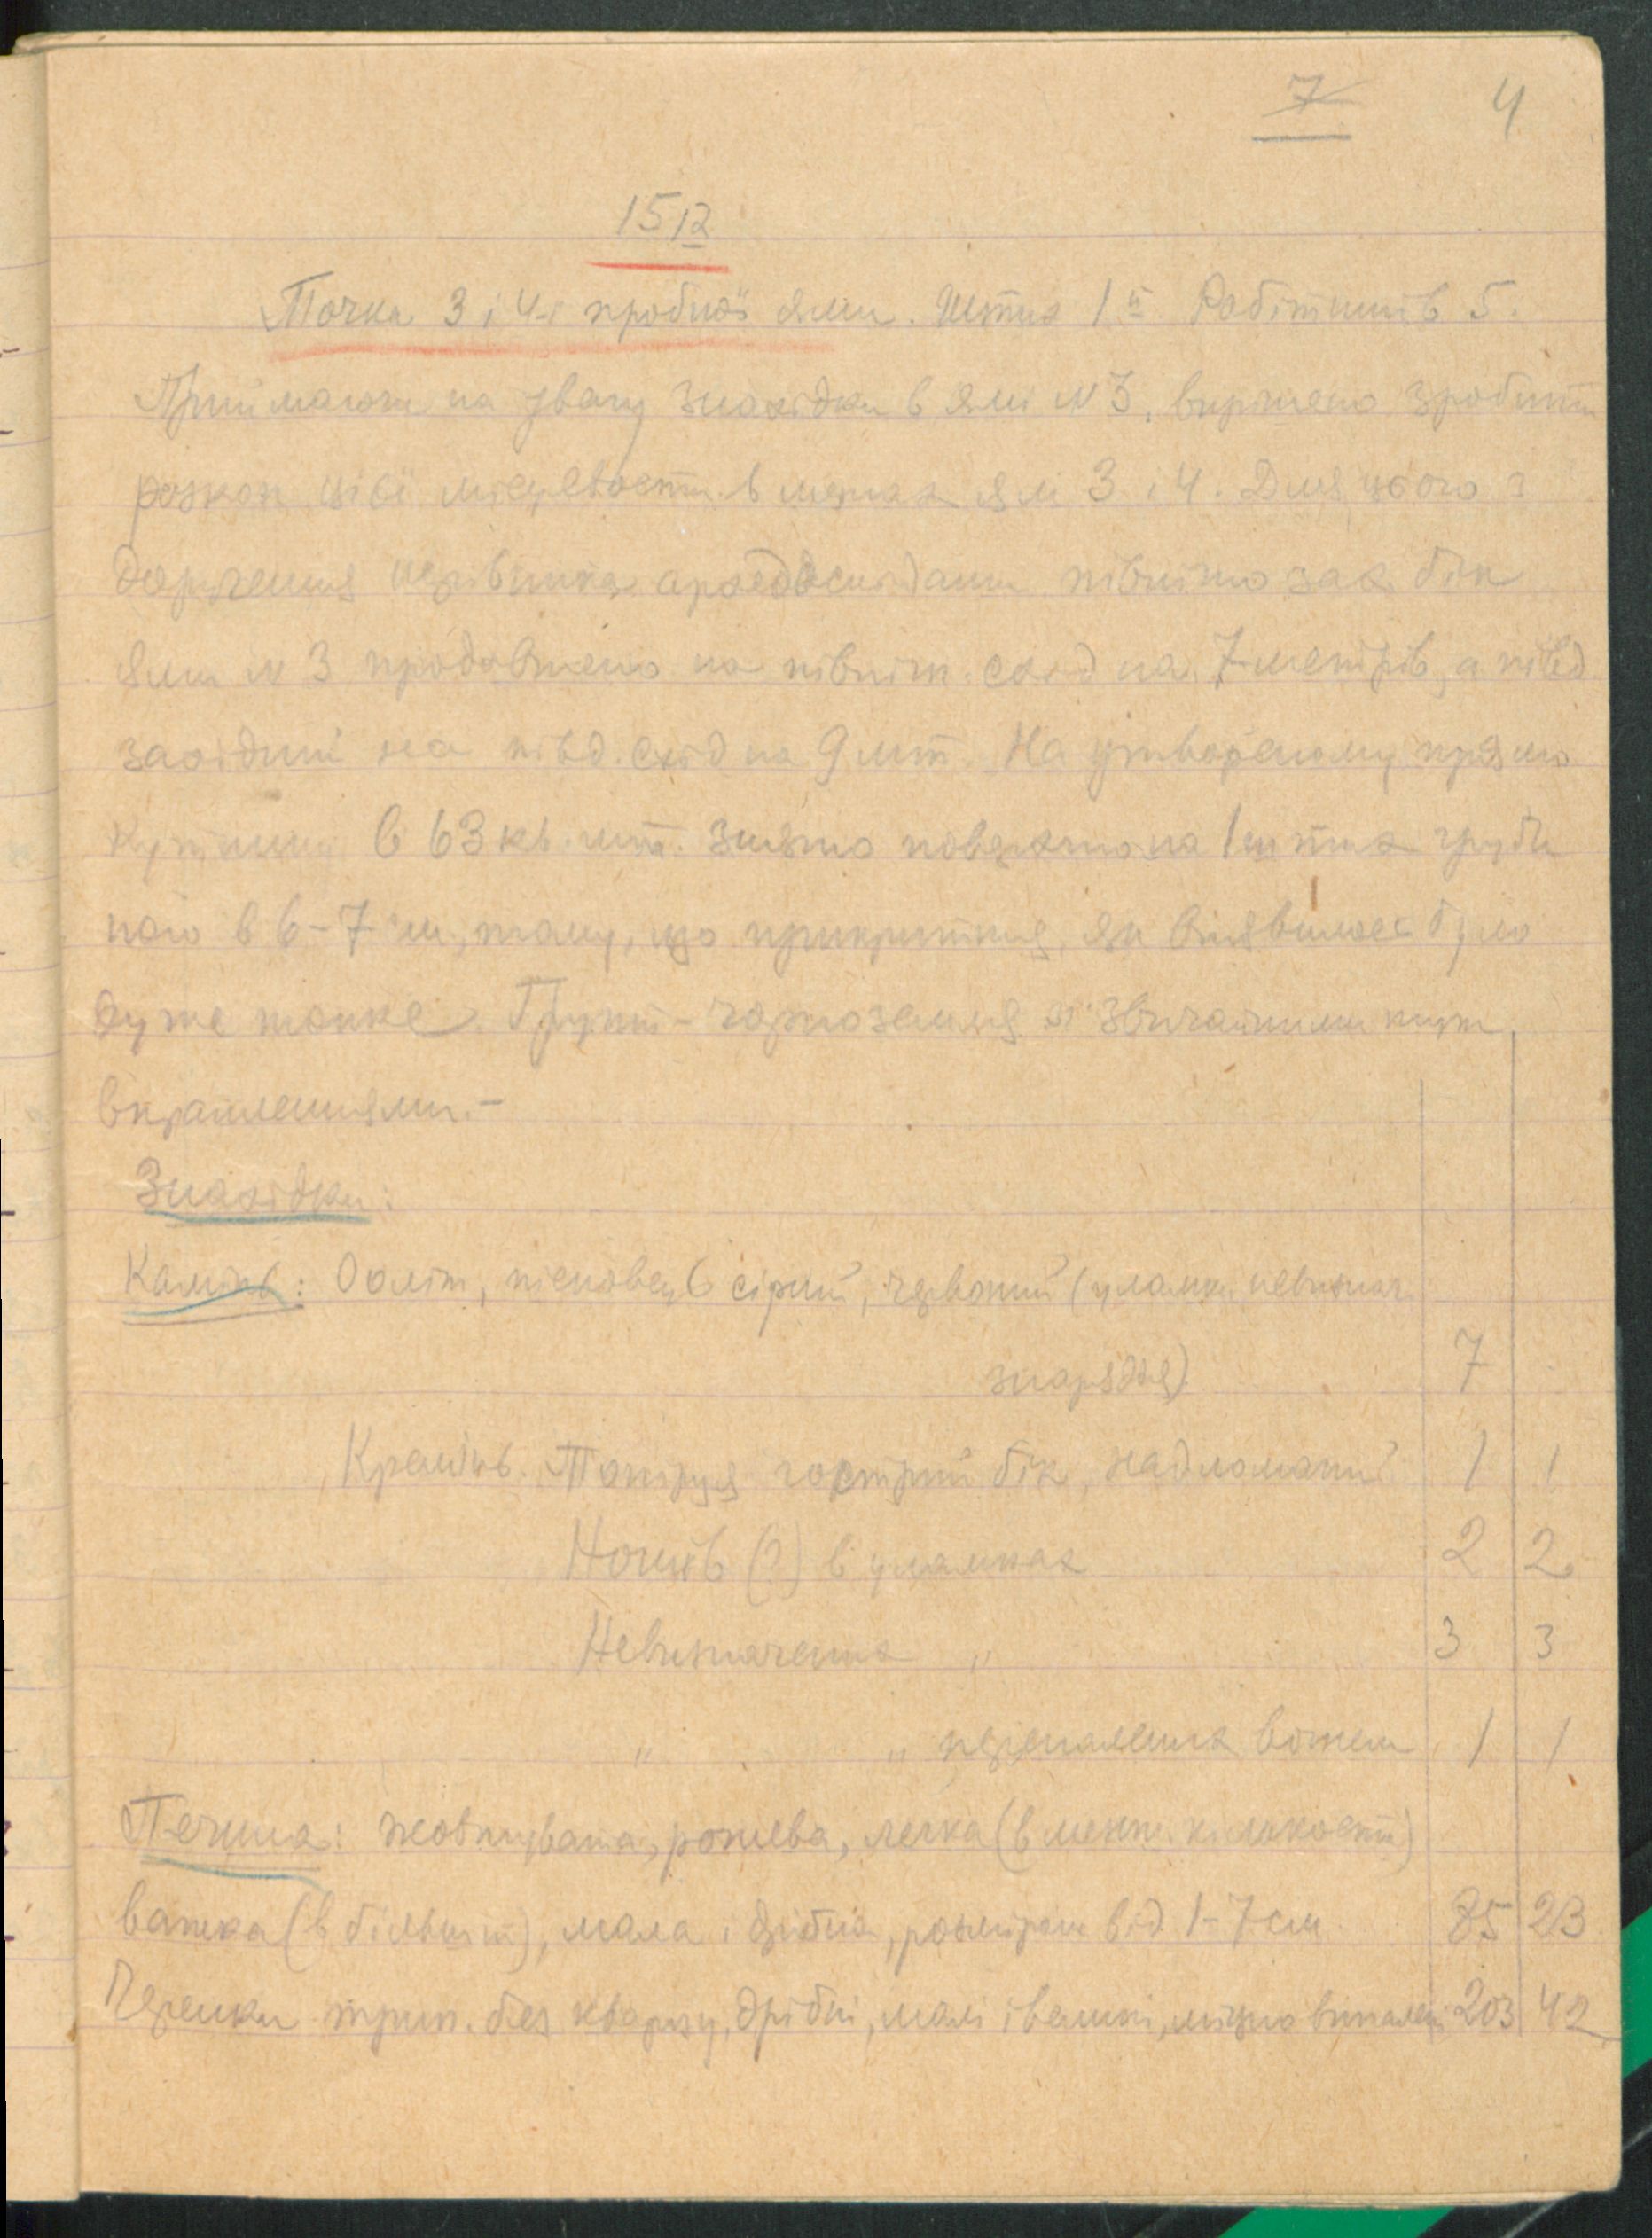 7 4
15 12
Точка 3 і 4-ї пробної ями. Штих 1й Робітників 5.
Приймаючи на увагу знахідки в ямі № 3, вирішено зробити
розкоп цієї місцевости в межах ям 3 і 4. Для цього з
доручення керівника археодослідами північно зах бік
ями № 3 продовжено на північ. схід на 7 метрів, а півд
західний на півд. схід на 9 мт. На утвореному прямо
кутнику в 63 кв. мт. знято поверхню на 1 штих
в 6-7 см, тому, що прикриття, як виявилось було
дуже тонке. Грунт - чорноземля зі звичайними
вкрапленнями.-
Знахідки:
Камінь: Ооліт, пісковець сірий, червоний (уламки невизнач.
знаряддя) 7
Кремінь. гострий бік, надломаний 1 1
Ножів (?) в уламках 2 2
Невизначених " 3 3
" " перепалених вогнем 1 1
Печина: жовтувата, рожева, легка (в менш. кількості)
важка (в більшіст), мала і дрібна, розміром від 1-7 см 85 23
Черепки трип. без кварцу, дрібні, малі і великі, міцно випалені 203 42